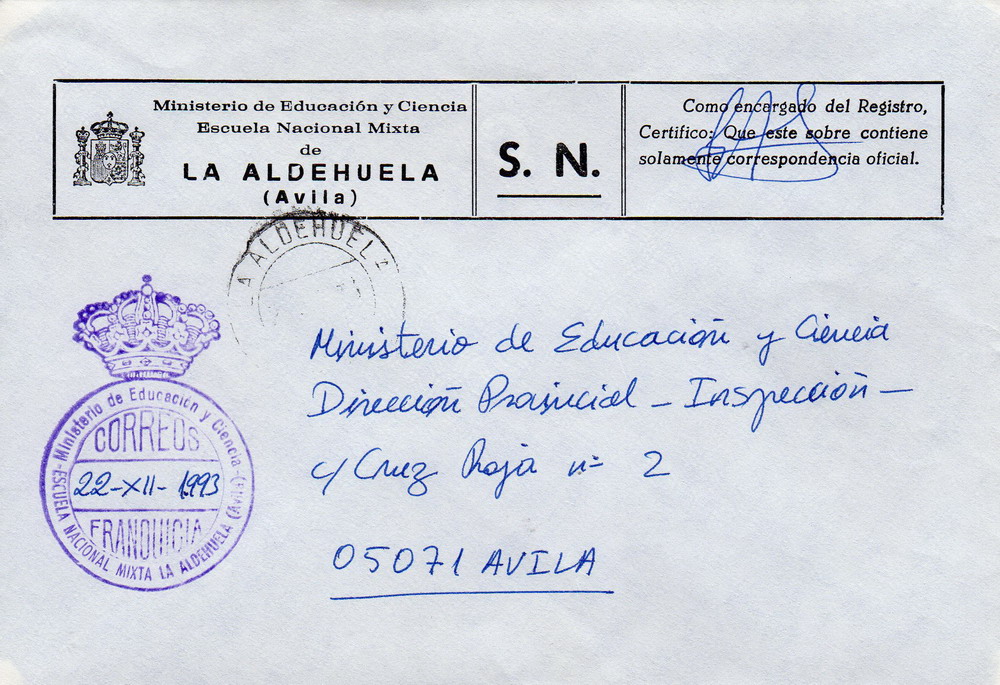 Ministerio de Educación y Ciencia
Escuela Nacional Mixta
de
LA ALDEHUELA
(Avila)
S. N.
Como encargado del Registro,
Certifico: Que este sobre contiene
solamente correspondencia oficial.
LA ALDEHUELA
Ministerio de Educación y Ciencia
Dirección Provincial - Inspección -
c/ Cruz Roja nº 2
05071 AVILA
Ministerio de Educación y Ciencia
CORREOS
22-XII-1993
FRANQUICIA
ESCUELA NACIONAL MIXTA LA ALDEHUELA (AVILA)